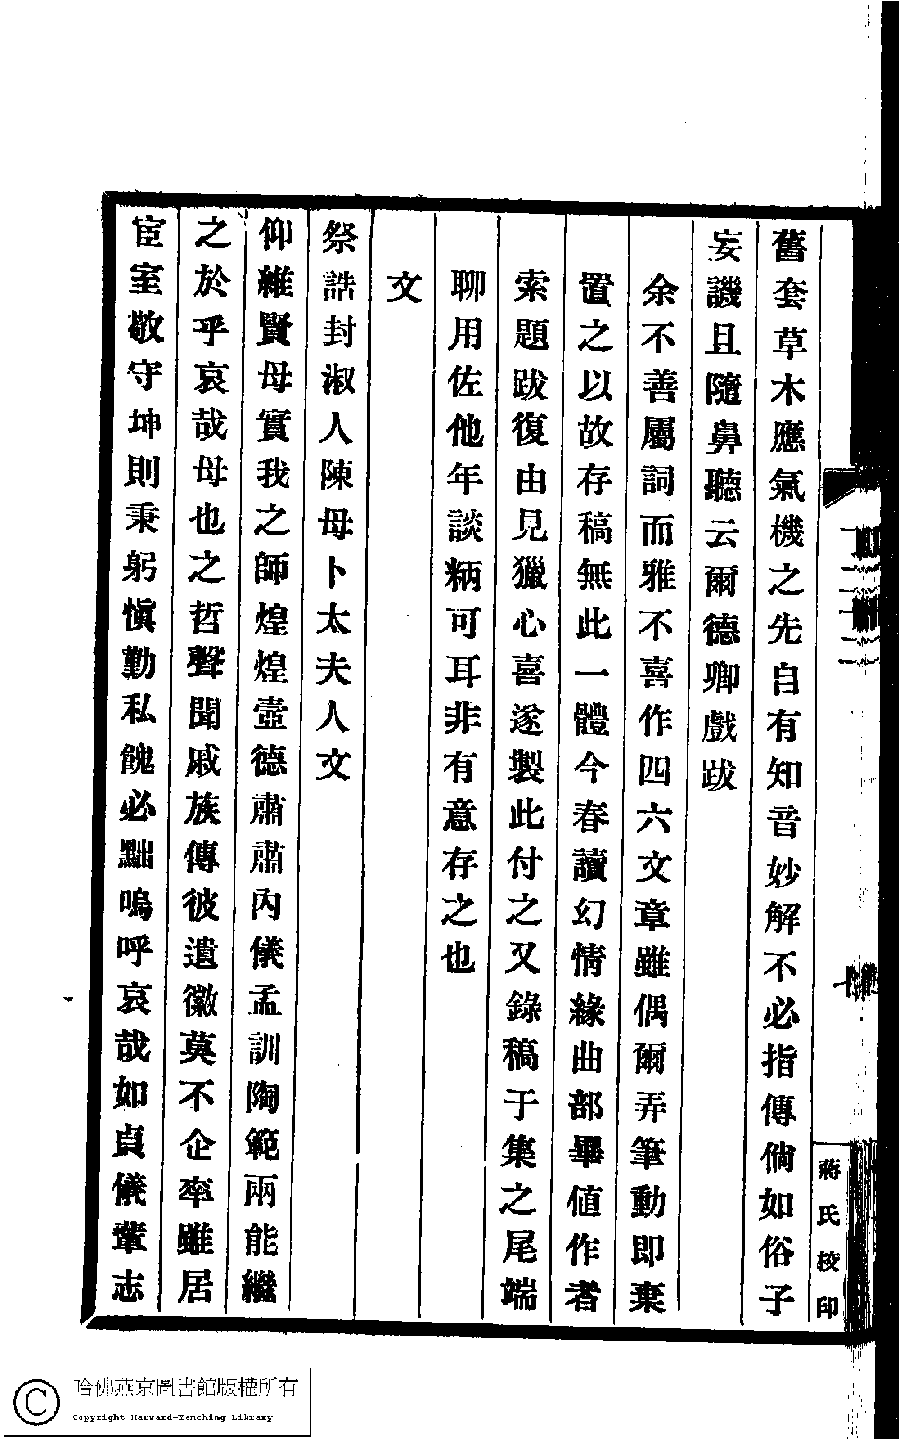 舊套草木應氣機之先自有知音妙解不必指傳倘如俗子
妄譏且隨鼻聽云爾德卿戲跋
余不善屬詞而雅不喜作四六文章雖偶爾弄筆動即棄
置之以故存稿無此一體今春讀幻情緣曲部畢值作者
索題跋復由見獵心喜遂製此付之又錄稿于集之尾端
聊用佐他年談柄可耳非有意存之也
文
祭誥封淑人陳母卜太夫人文
仰維賢母實我之師煌煌壼德肅肅內儀孟訓陶範兩能繼
之於乎哀哉母也之哲聲聞戚族傳彼遺徽莫不企率雖居
宦室敬守坤則秉躬愼勤私餽必黜嗚呼哀哉如貞儀輩志
蔣氏校印
哈佛燕京圖書館版權所有
Copyright Harvard-Yenching Library